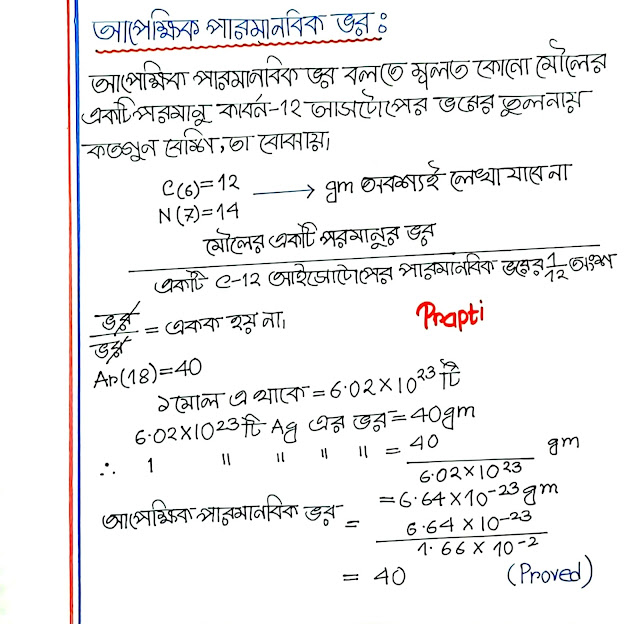 আপেক্ষিক পারমানবিক ভর :
আপেক্ষিক পারমানবিক ভর বলতে মূলত কোনো মৌলের
একটি পরমানু কার্বন-12 আসটোপের ভরের তুলনায়
কতগুন বেশি, তা বোঝায়।
C(6)=12
N(7)=14 → gm অবশ্যই লেখা যাবে না
মৌলের একটি পরমানুর ভর
একটি C-12 আইসোটোপের পারমানবিক ভরের 1/12 অংশ
ভর/ভর = একক হয় না।
Prapti
Ar(18)=40
১ মোল এ থাকে = 6.02×10^23 টি
6.02×10^23 টি Ag এর ভর = 40gm
∴ 1 " " " " = 40/6.02×10^23 gm
= 6.64×10^-23 gm
আপেক্ষিক পারমানবিক ভর = 6.64×10^-23/1.66×10^-2
= 40 (Proved)